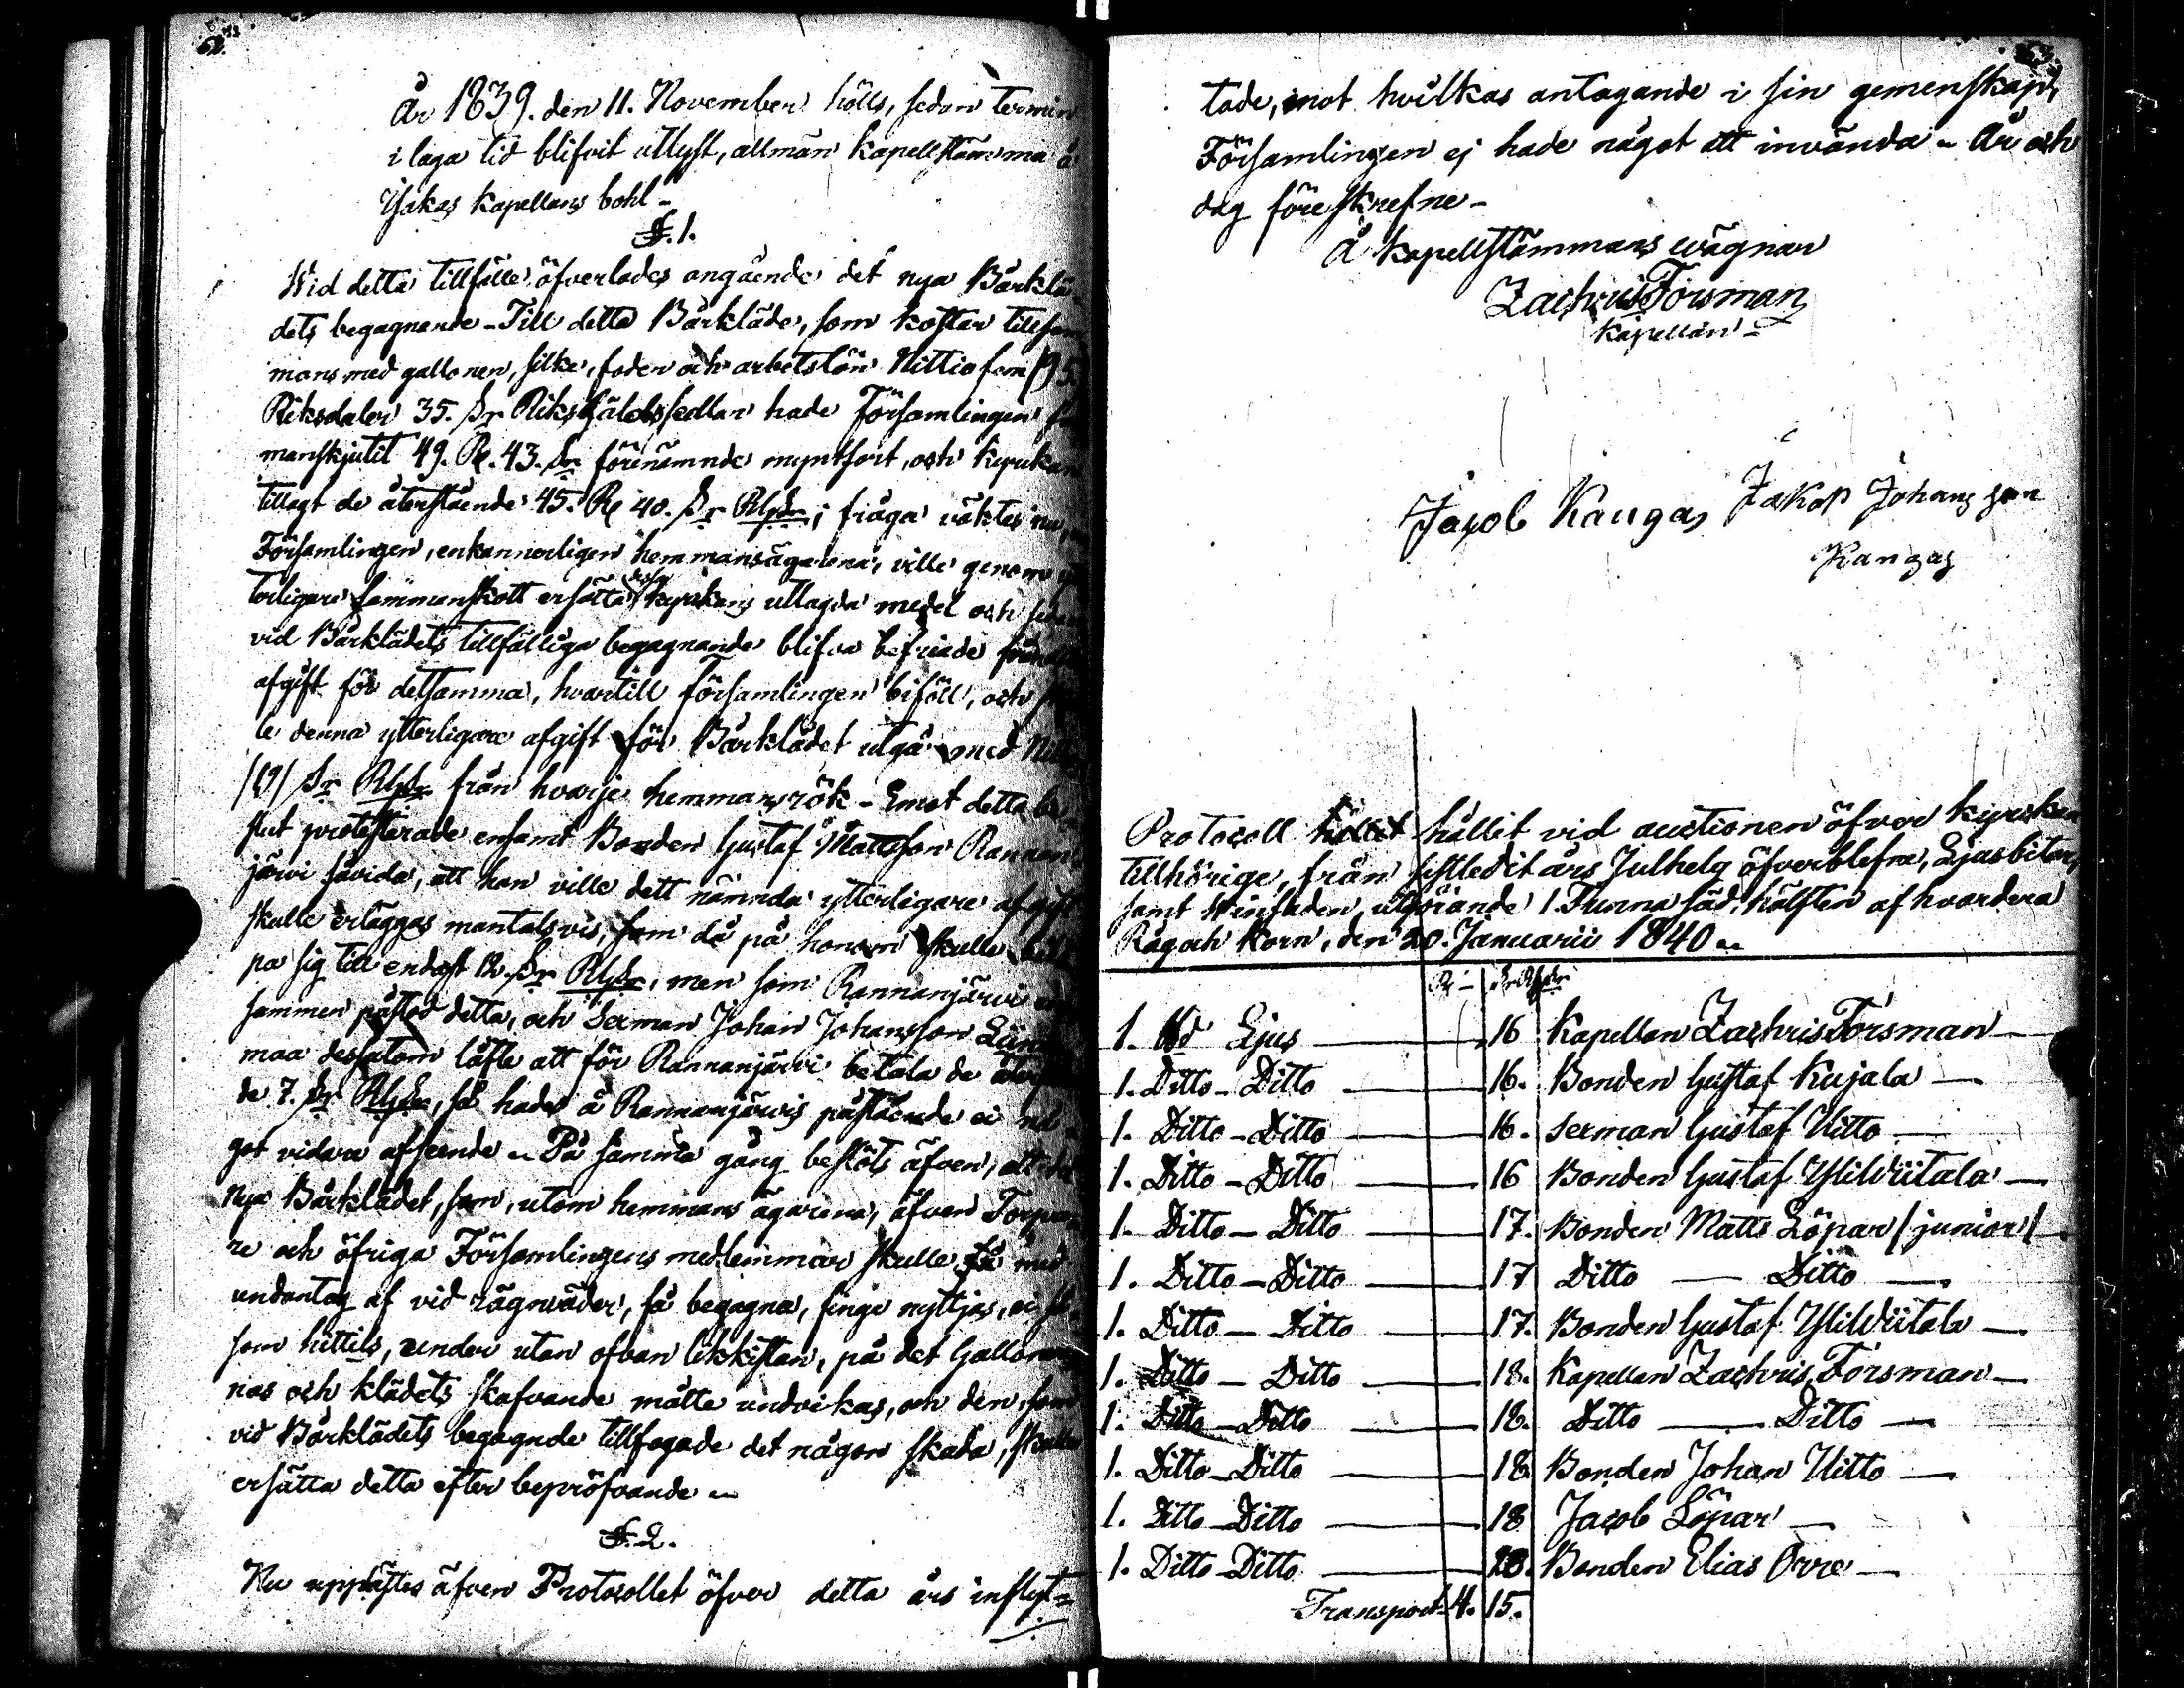 62.
År 1839. den 11. November hölls, sedan termin
i laga tid blifvit utlyst, allmän kapellstämma å
Ylihakas kapellans bohl -
§. 1.
Wid detta tillfälle öfverlades angående det nya Bårklä-
dets begagnande - Till detta Bårkläde, som kostar tillsam
mans med galloner, silke, foder och arbetslön Nittiofem /95
Riksdaler 35. sr Riksgäldssedlar hade Församlingen
manskjutit 49. R. 43. sr förenämnde myntsort, och kyrkan
tillagt de återstående 45. R 40. sr Rgs; fråga väktes nu,
Församlingen, enkannerligen hemmansägarena, ville genom
terligare sammanskott ersätta dessa kyrkans utlagda medel och sedan
vid Bårklädets tillfälliga begagnande blifva befriade från
afgift för detsamma, hvartill församlingen biföll, och
le denna ytterligare afgift för Bårklädet utgå med
/19/ sr Rgs från hvarje hemmansrök - Emot detta be-
slut protesterade ensamt Bonden Gustaf Mattsson Rannan
järvi såvida, att han ville dett nämnda ytterligare afgift
skulle erläggas mantalsvis, som då på honom skulle
pa sig till endast 12. sr Rgs, men som Rannanjärvi
sammen påstod detta, och Serman Johan Johansson
maa dessutom läfte att för Rannanjärvi betala de
de 7. sr Rgs, så hades å Rannanjärvis påstående ei nå-
got vidare afseende - På samma gång beslöts äfven, att
nya Bårklädet, som, utom hemmans ägarena, äfven Torpa-
re och öfriga Församlingens medlemmar skulle få med
undantag af vid rägnväder, få begagna, finge nyttjas, ei så
som hittils, under utan ofvan likkistan, på det Gallone
nas och klädets skafvande måtte undvikas, och den, som
vid Bårklädets begagnde tillfogade det någon skada, skulle
ersätta detta efter bepröfvande -
§. 2.
Nu upplästes äfven Protocollet öfver detta års inflyt-
63.
tade, mot hvilkas antagande i sin gemenskap,
Församlingen ej hade något att invända - År och
dag föreskrefne -
Å kapellstämmans wägnar
Zachris Forsman
Kapellan -
Jacob Kangas
Jakop Johansson
Kangas
Protocoll hållit hållit vid auctionen öfver kyrkan
tillhörige, från sistledit års Julhelg öfverblefne, Ljusbitar,
samt Winfaden, utgörande 1. Tunna säd, hälften af hvardera
Råg och Korn, den 20. Januarii 1840 -
R - sr Rgs
1. Ljus — 16 Kapellan Zachris Forsman —
1. Ditto - Ditto — 16. Bonden Gustaf Kujala —
1. Ditto - Ditto — 16. Serman Gustaf Uitto —
1. Ditto - Ditto — 16 Bonden Gustaf YliWiitala —
1. Ditto - Ditto — 17. Bonden Matts Löpar /junior/ —
1. Ditto - Ditto — 17 Ditto — Ditto —
1. Ditto - Ditto — 17. Bonden Gustaf YliWiitala —
1. Ditto - Ditto — 18. Kapellan Zachris Forsman —
1. Ditto - Ditto — 18. Ditto — Ditto —
1. Ditto - Ditto — 18. Bonden Johan Uitto —
1. Ditto - Ditto — 18 Jacob Löpar —
1. Ditto - Ditto — 18. Bonden Elias Orre —
Transport 4. 15.